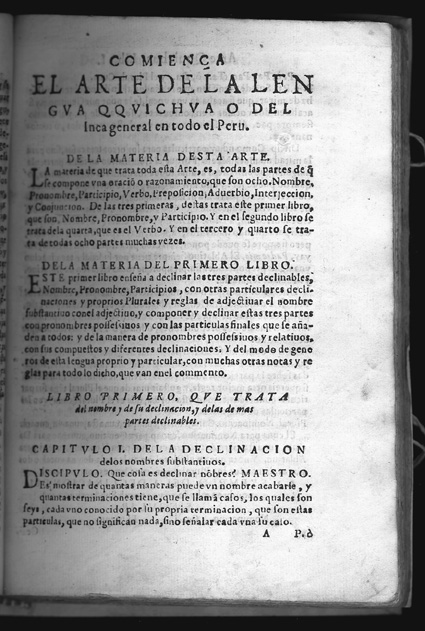 COMIENÇA
EL ARTE DE LA LEN
GVA QQVICHVA O DEL
Inca general en todo el Peru.
DE LA MATERIA DESTA ARTE.
LA materia de que trata toda esta Arte, es, todas las partes de q̃
se compone vna oració o razonamiento, que son ocho. Nombre,
Pronombre, Participio, Verbo, Preposicion, Aduerbio, Interjeccion,
y Conjuncion. De las tres primeras, destas trata este primer libro,
que son, Nombre, Pronombre, y Participio. Y en el segundo libro se
trata dela quarta, que es el Verbo. Y en el tercero y quarto se tra-
ta de todas ocho partes muchas vezes.
DE LA MATERIA DEL PRIMERO LIBRO.
ESTE primer libro enseña a declinar las tres partes declinables,
Nombre, Pronombre, Participios, con otras particulares decli-
naciones y proprios Plurales y reglas de adjectiuar el nombre
substantiuo con el adjectiuo, y componer y declinar estas tres partes
con pronombres possessiuos y con las particulas finales que se aña-
den a todos: y de la manera de pronombres possessiuos y relatiuos,
con sus compuestos y diferentes declinaciones: Y del modo de gene
ros de esta lengua proprio y particular, con muchas otras notas y re
glas para todo lo dicho, que van en el commento.
LIBRO PRIMERO, QVE TRATA
del nombre y de su declinacion, y delas de mas
partes declinables.
CAPITVLO I. DE LA DECLINACION
delos nombres substantiuos.
DISCIPVLO. Que cosa es declinar nõbres? MAESTRO.
Es mostrar de quantas maneras puede vn nombre acabarse, y
quantas terminaciones tiene, que se llamã casos, los quales son
seys, cada vno conocido por su propria terminacion, que son estas
particulas, que no significan nada, sino señalar cada vna su caso.
A P. ò